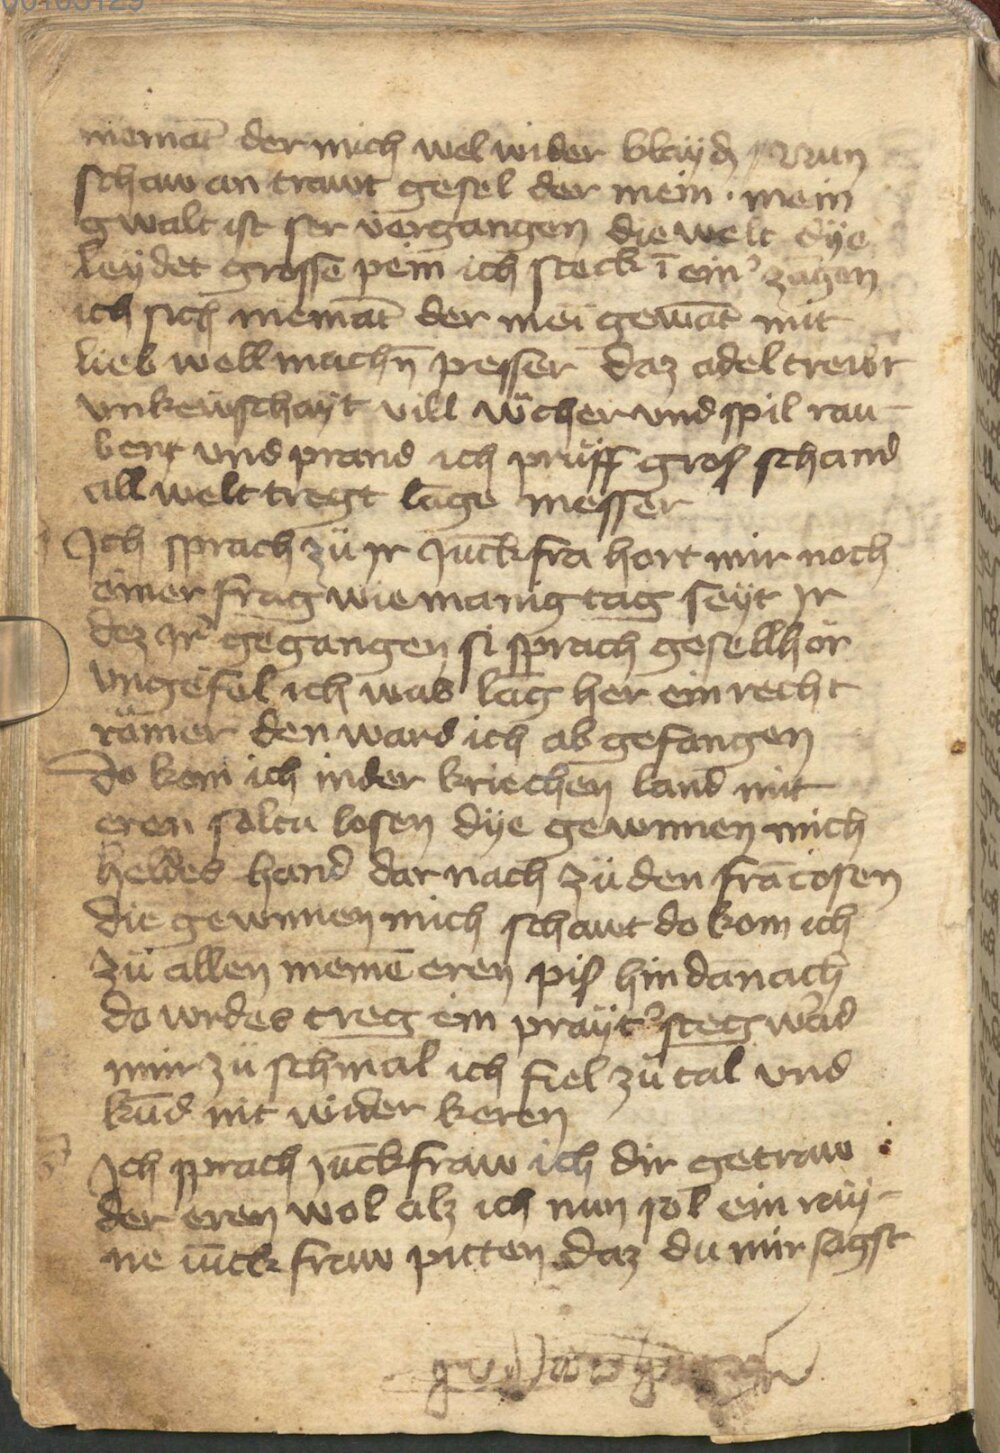 00105129
niemāt der mich wel wider bkayd / Nun
schaw an trawt gesel der mein · mein
gwalt ist ser vergangen die welt dÿe
leydet grosse pein ich steck ī ein' zangen
ich sich niemāt der mei gewāt mit
lieb well machn̄ pesser daz adel treibt
vnkewschayt vill wͦcher vnd spil rau
bent vnd prand ich prüff gros schand
all welt tregt lāge messer
Ich sprach zü Ir Junckfra hort mir noch
einer frag wie manig tag seyt Ir
dez Ir' gegangen si sprach gesell hör
vngefel ich was lāg her ein recht
rämer den ward ich ab gefangen
do kom ich in der kriechen land mit
eren soltu losen dÿe gewunnen mich
heldes hand dar nach zü den frācosen
die gewunnen mich schawt do kom ich
zü allen meinē eren pis hin danach
do wrdes treg ein prayt' steg ward
mir zü schmal ich fiel zü tal vnd
kūd nit wider keren
Ich sprach Jūckfraw ich dir getraw
der eren wol alz ich nun sol ein ray
ne iūckfraw pitten daz du mir sagst